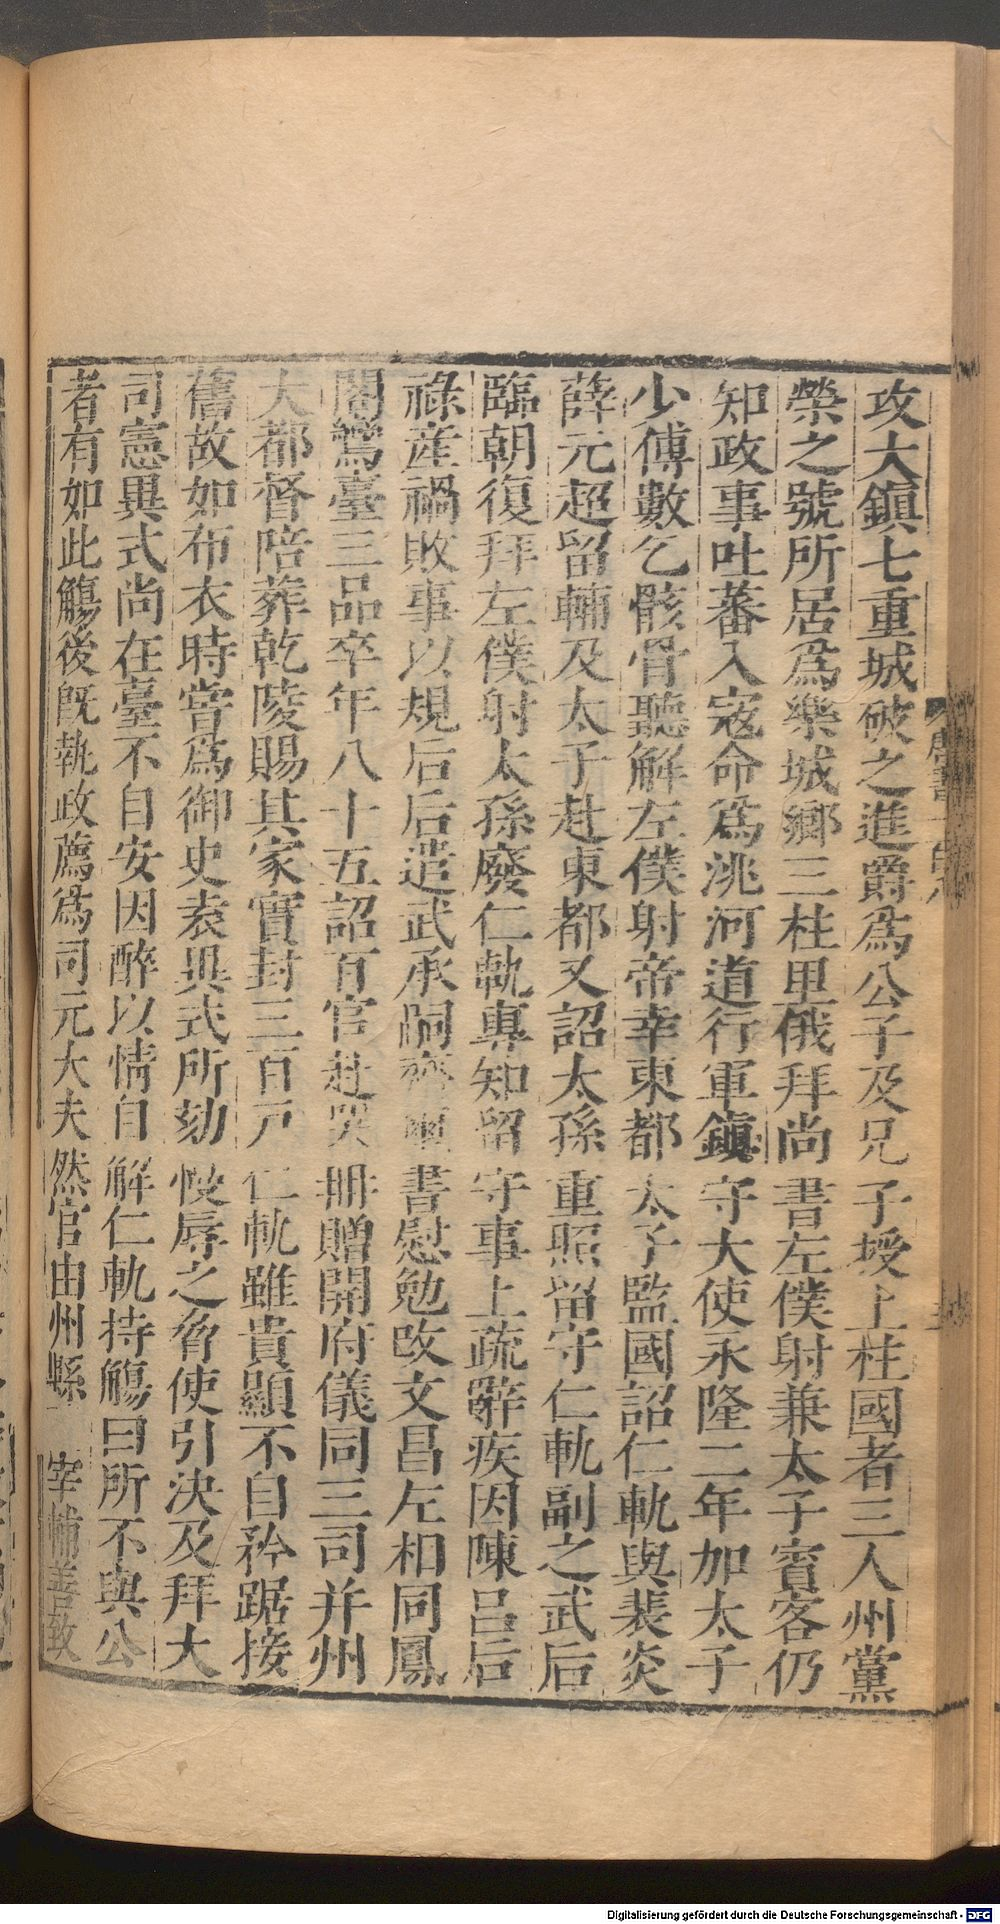 攻大鎮七重城破之進爵爲公子及兄子授上柱國者三人州黨
榮之號所居爲樂城鄉三柱里俄拜尚書左僕射兼太子賓客仍
知政事吐蕃入寇命爲洮河道行軍鎮守大使永隆二年加太子
少傅數乞骸骨聽解左僕射帝幸東都太子監國詔仁軌與裴炎
薛元超留輔及太子赴東都又詔太孫重照留守仁軌副之武后
臨朝復拜左僕射太孫廢仁軌專知留守事上疏辭疾因陳呂后
祿產禍敗事以規后后遣武承嗣齎璽書慰勉改文昌左相同鳳
閣鸞臺三品卒年八十五詔百官赴哭冊贈開府儀同三司并州
大都督陪葬乾陵賜其家實封三百戶仁軌雖貴顯不自矜踞接
舊故如布衣時嘗爲御史袁異式所劾慢辱之脅使引決及拜大
司憲異式尚在臺不自安因醉以情自解仁軌持觴曰所不與公
者有如此觴後既執政薦爲司元大夫然官由州縣 宰輔善致
唐書
Digitalisierung gefördert durch die Deutsche Forschungsgemeinschaft - DFG